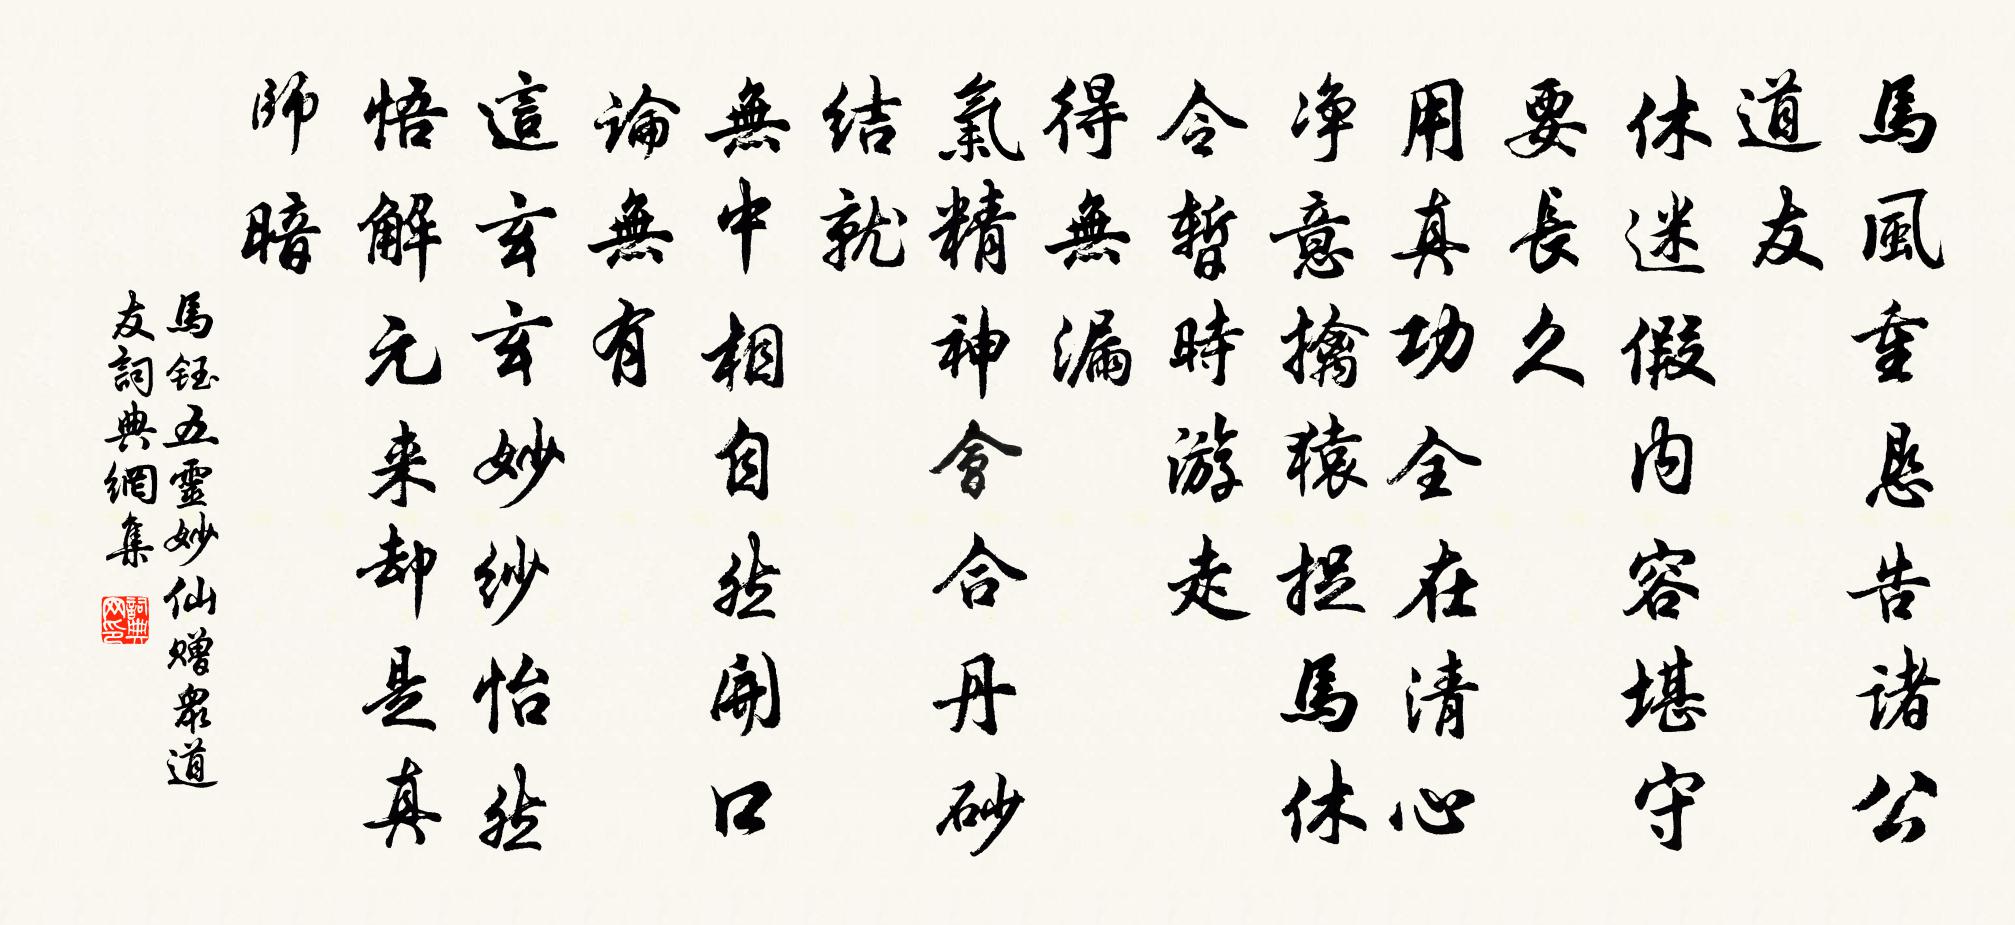 馬風重恳告诸公
道友
休迷假内容堪守
要長久
用真功全在清心
净意擒猿捉馬休
令暫時游走
得無漏
氣精神會合丹砂
结就
無中相自然開口
论無有
這玄玄妙妙怡然
悟解元来却是真
師暗
馬钰五靈妙仙赠衆道
友詞典網集
詞典网印